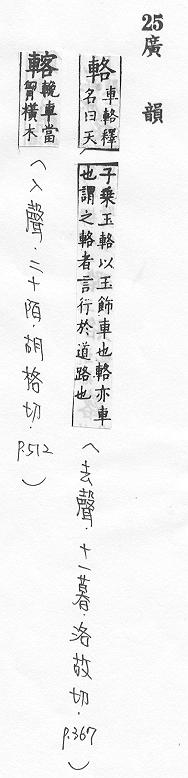 25廣韻
輅 車輅釋名曰天
子乘玉輅以玉飾車也輅亦車
也謂之輅者言行於道路也
(去聲.十一暮.洛故切.p.367)
輅 輓車當胷橫木
(入聲.二十陌.胡格切.p.512)